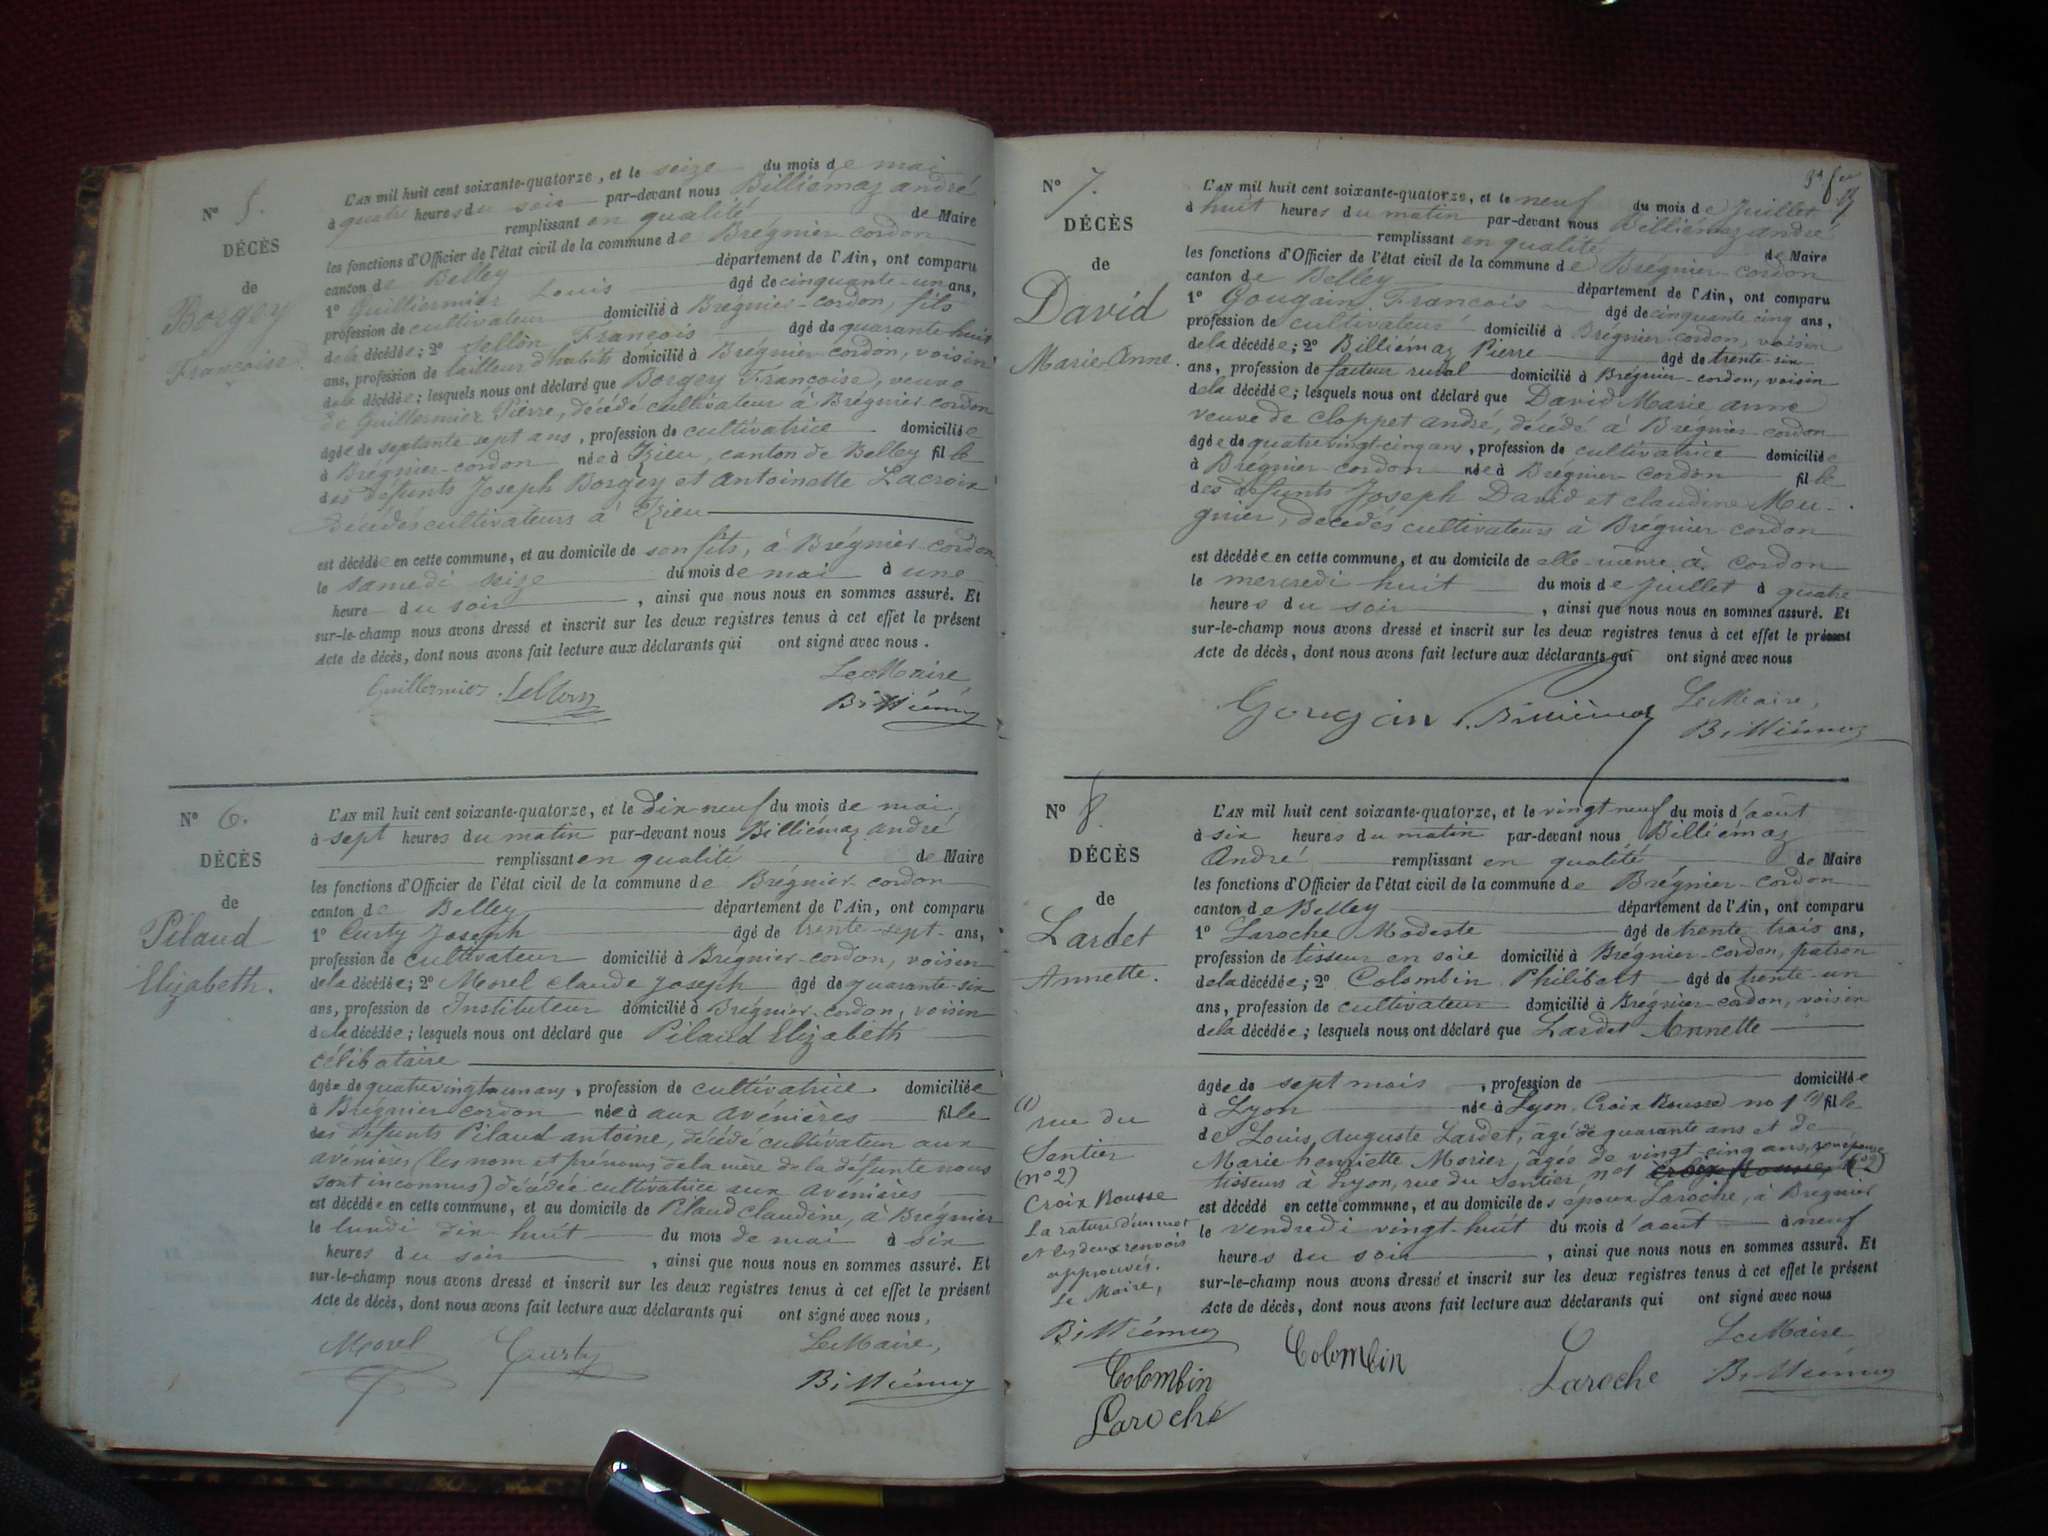 N° 5.
DÉCÈS
de
Borgey
Françoise.
L'AN mil huit cent soixante-quatorze, et le seize du mois de mai
à quatre heures du soir par-devant nous Billiémaz andré
remplissant en qualité de Maire
les fonctions d'Officier de l'état civil de la commune de Brégnier-cordon
canton de Belley département de l'Ain, ont comparu
1° Guillermier Louis âgé de cinquante-un ans,
profession de cultivateur domicilié à Brégnier-cordon, fils
de la décédée; 2° François âgé de quarante-huit
ans, profession de tailleur d'habits domicilié à Brégnier-cordon, voisin
de la décédée; lesquels nous ont déclaré que Borgey Françoise, veuve
de Guillermier Pierre, décédé cultivateur à Brégnier-cordon
âgée de septante-sept ans, profession de cultivatrice domiciliée
à Brégnier-cordon née à Izieu, canton de Belley fille
des défunts Joseph Borgey et antoinette Lacroix
décédés cultivateurs à Izieu
est décédée en cette commune, et au domicile de son fils, à Brégnier-cordon
le samedi seize du mois de mai à une
heure du soir, ainsi que nous nous en sommes assuré. Et
sur-le-champ nous avons dressé et inscrit sur les deux registres tenus à cet effet le présent
Acte de décès, dont nous avons fait lecture aux déclarants qui ont signé avec nous.
Le Maire
Guillermier Billiémaz
N° 6.
DÉCÈS
de
Pilaud
Elizabeth.
L'AN mil huit cent soixante-quatorze, et le dix-neuf du mois de mai
à sept heures du matin par-devant nous Billiémaz andré
remplissant en qualité de Maire
les fonctions d'Officier de l'état civil de la commune de Brégnier-cordon
canton de Belley département de l'Ain, ont comparu
1° Curty Joseph âgé de trente-sept ans,
profession de cultivateur domicilié à Brégnier-cordon, voisin
de la décédée; 2° Morel claude Joseph âgé de quarante-six
ans, profession de Instituteur domicilié à Brégnier-cordon, voisin
de la décédée; lesquels nous ont déclaré que Pilaud Elizabeth
célibataire
âgée de quatrevingt-un ans, profession de cultivatrice domiciliée
à Brégnier-cordon née à aux avénières fille
des défunts Pilaud antoine, décédé cultivateur aux
avénières (les nom et prénoms de la mère de la défunte nous
sont inconnus) décédée cultivatrice aux avénières
est décédée en cette commune, et au domicile de Pilaud claudine, à Brégnier
le lundi dix-huit du mois de mai à six
heures du soir, ainsi que nous nous en sommes assuré. Et
sur-le-champ nous avons dressé et inscrit sur les deux registres tenus à cet effet le présent
Acte de décès, dont nous avons fait lecture aux déclarants qui ont signé avec nous,
Morel Curty Le Maire,
Billiémaz
N° 7.
DÉCÈS
de
David
Marie-Anne.
L'AN mil huit cent soixante-quatorze, et le neuf du mois de Juillet
à huit heures du matin par-devant nous Billiémaz andré
remplissant en qualité de Maire
les fonctions d'Officier de l'état civil de la commune de Brégnier-cordon
canton de Belley département de l'Ain, ont comparu
1° Gougain François âgé de cinquante cinq ans,
profession de cultivateur domicilié à Brégnier-cordon, voisin
de la décédée; 2° Billiémaz Pierre âgé de trente-six
ans, profession de facteur rural domicilié à Brégnier-cordon, voisin
de la décédée; lesquels nous ont déclaré que David Marie anne
veuve de Cloppet andré, décédé à Brégnier-cordon
âgée de quatrevingt cinq ans, profession de cultivatrice domiciliée
à Brégnier-cordon née à Brégnier-cordon fille
des défunts Joseph David et claudine Meu-
gnier, décédés cultivateurs à Brégnier-cordon
est décédée en cette commune, et au domicile de elle-même à cordon
le mercredi huit du mois de Juillet à quatre
heures du soir, ainsi que nous nous en sommes assuré. Et
sur-le-champ nous avons dressé et inscrit sur les deux registres tenus à cet effet le présent
Acte de décès, dont nous avons fait lecture aux déclarants qui ont signé avec nous
Gougain Billiémaz Le Maire,
Billiémaz
N° 8.
DÉCÈS
de
Lardet
Annette.
L'AN mil huit cent soixante-quatorze, et le vingt neuf du mois d'août
à six heures du matin par-devant nous Billiémaz
André remplissant en qualité de Maire
les fonctions d'Officier de l'état civil de la commune de Brégnier-cordon
canton de Belley département de l'Ain, ont comparu
1° Laroche Modeste âgé de trente-trois ans,
profession de tisseur en soie domicilié à Brégnier-cordon, patron
de la décédée; 2° Colombin Philibert âgé de trente-un
ans, profession de cultivateur domicilié à Brégnier-cordon, voisin
de la décédée; lesquels nous ont déclaré que Lardet Annette
âgée de sept mois, profession de domiciliée
à Lyon née à Lyon, Croix Rousse no 1 (1) fille
de Louis, Auguste Lardet, âgé de quarante ans et de
Marie henriette Morier, âgée de vingt-cinq ans, son épouse
tisseurs à Lyon, rue du Sentier, n° 1 Croix Rousse (n° 2)
est décédé en cette commune, et au domicile des époux Laroche, à Brégnier
le vendredi vingt-huit du mois d'août à neuf
heures du soir, ainsi que nous nous en sommes assuré. Et
sur-le-champ nous avons dressé et inscrit sur les deux registres tenus à cet effet le présent
Acte de décès, dont nous avons fait lecture aux déclarants qui ont signé avec nous
(1)
rue du
Sentier
(n° 2)
Croix Rousse
La rature d'un mot
et les deux renvois
approuvés.
Le Maire,
Billiémaz
Colombin
Laroche
Colombin
Laroche
Le Maire
Billiémaz